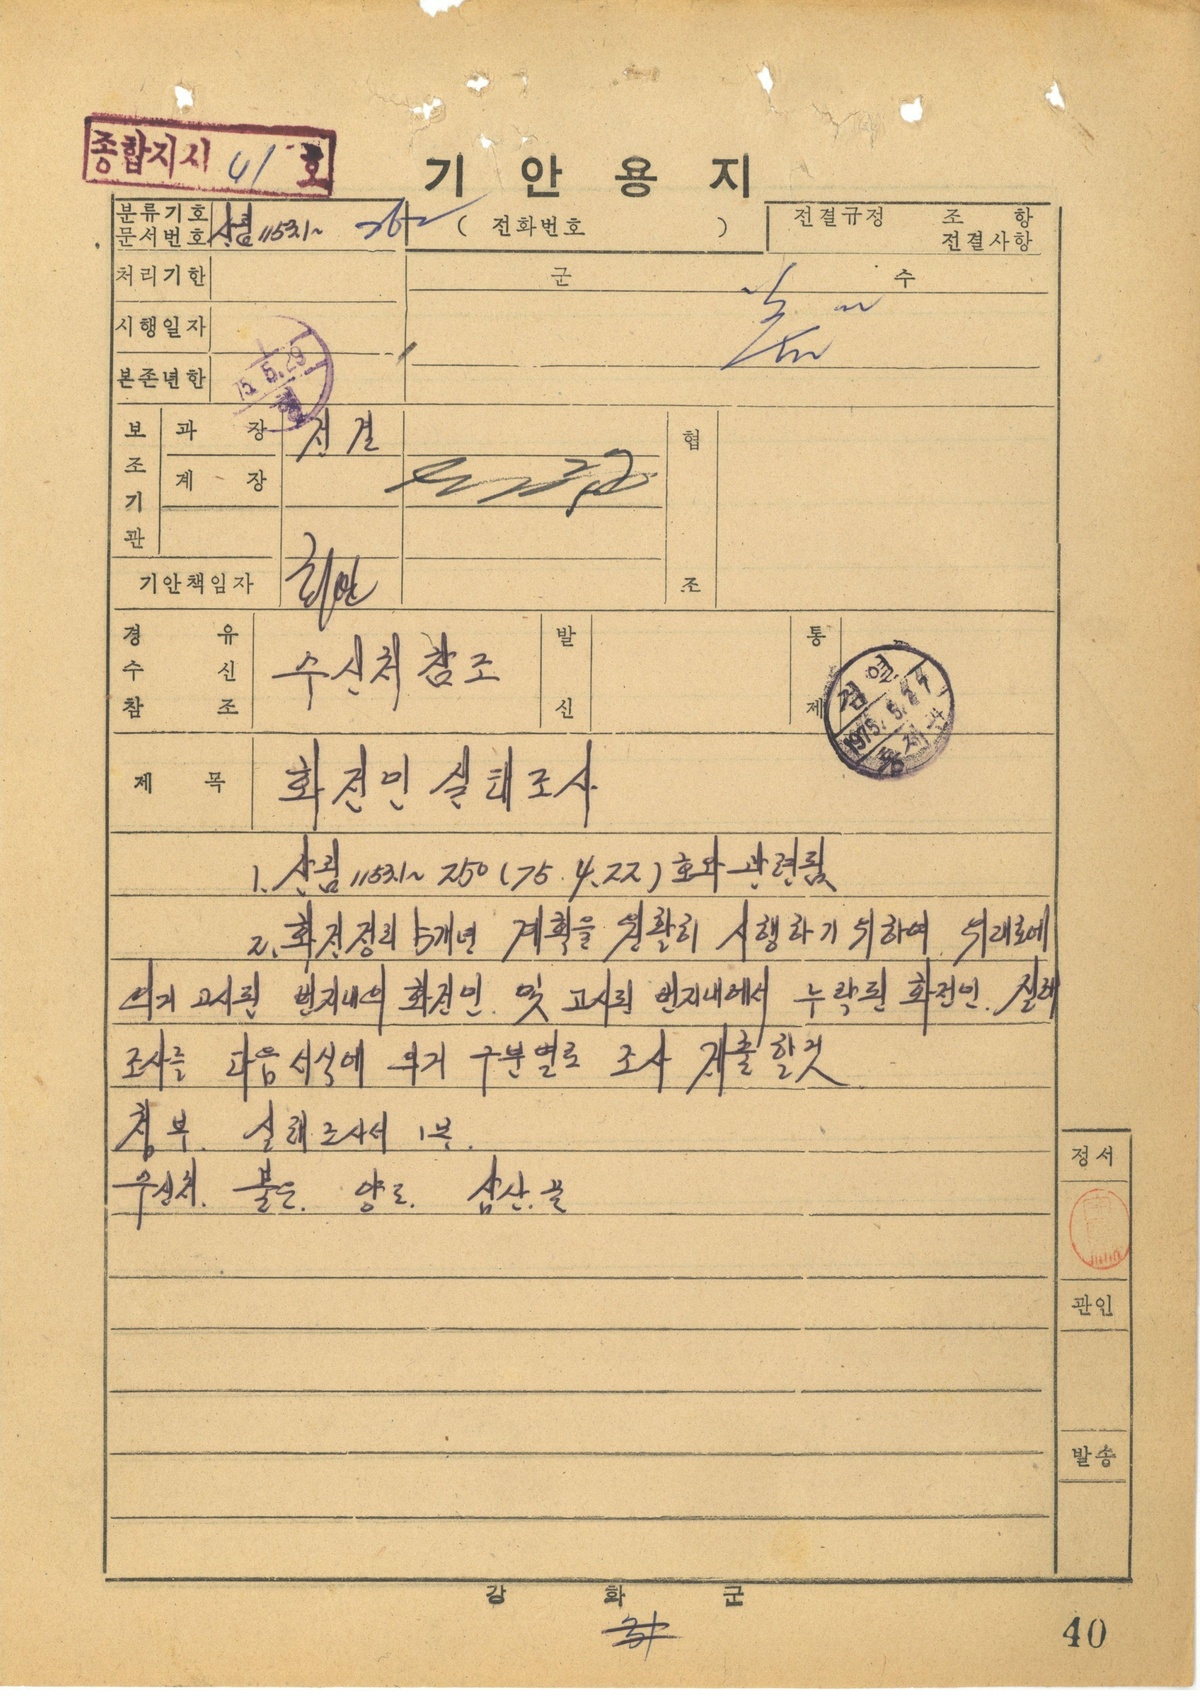 종합지시 41 호
기 안 용 지
분류기호
문서번호 산림 1153.1~ 362
( 전화번호 )
전결규정 조 항
전결사항
처리기한
군 수
시행일자
75. 5. 29
본존년한
보조기관
과 장 전결
계 장
협조
기안책임자
경유
수신 수신처 참조
참조
발신
통제
검열
1975. 5. 29
통제관
제 목 화전민 실태조사
1. 산림 1153.1~ 250 (75. 4. 22) 호와 관련됨
2. 화전정리 5개년 계획을 원활히 시행하기 위하여 위래로에
의거 고시된 번지내의 화전민 및 고시된 번지내에서 누락된 화전민 실태
조사를 다음 서식에 의거 구분별로 조사 제출할것
첨부. 실태조사서 1부.
수신처. 불은. 양도. 삼산. 끝
정서
관인
발송
강 화 군
40